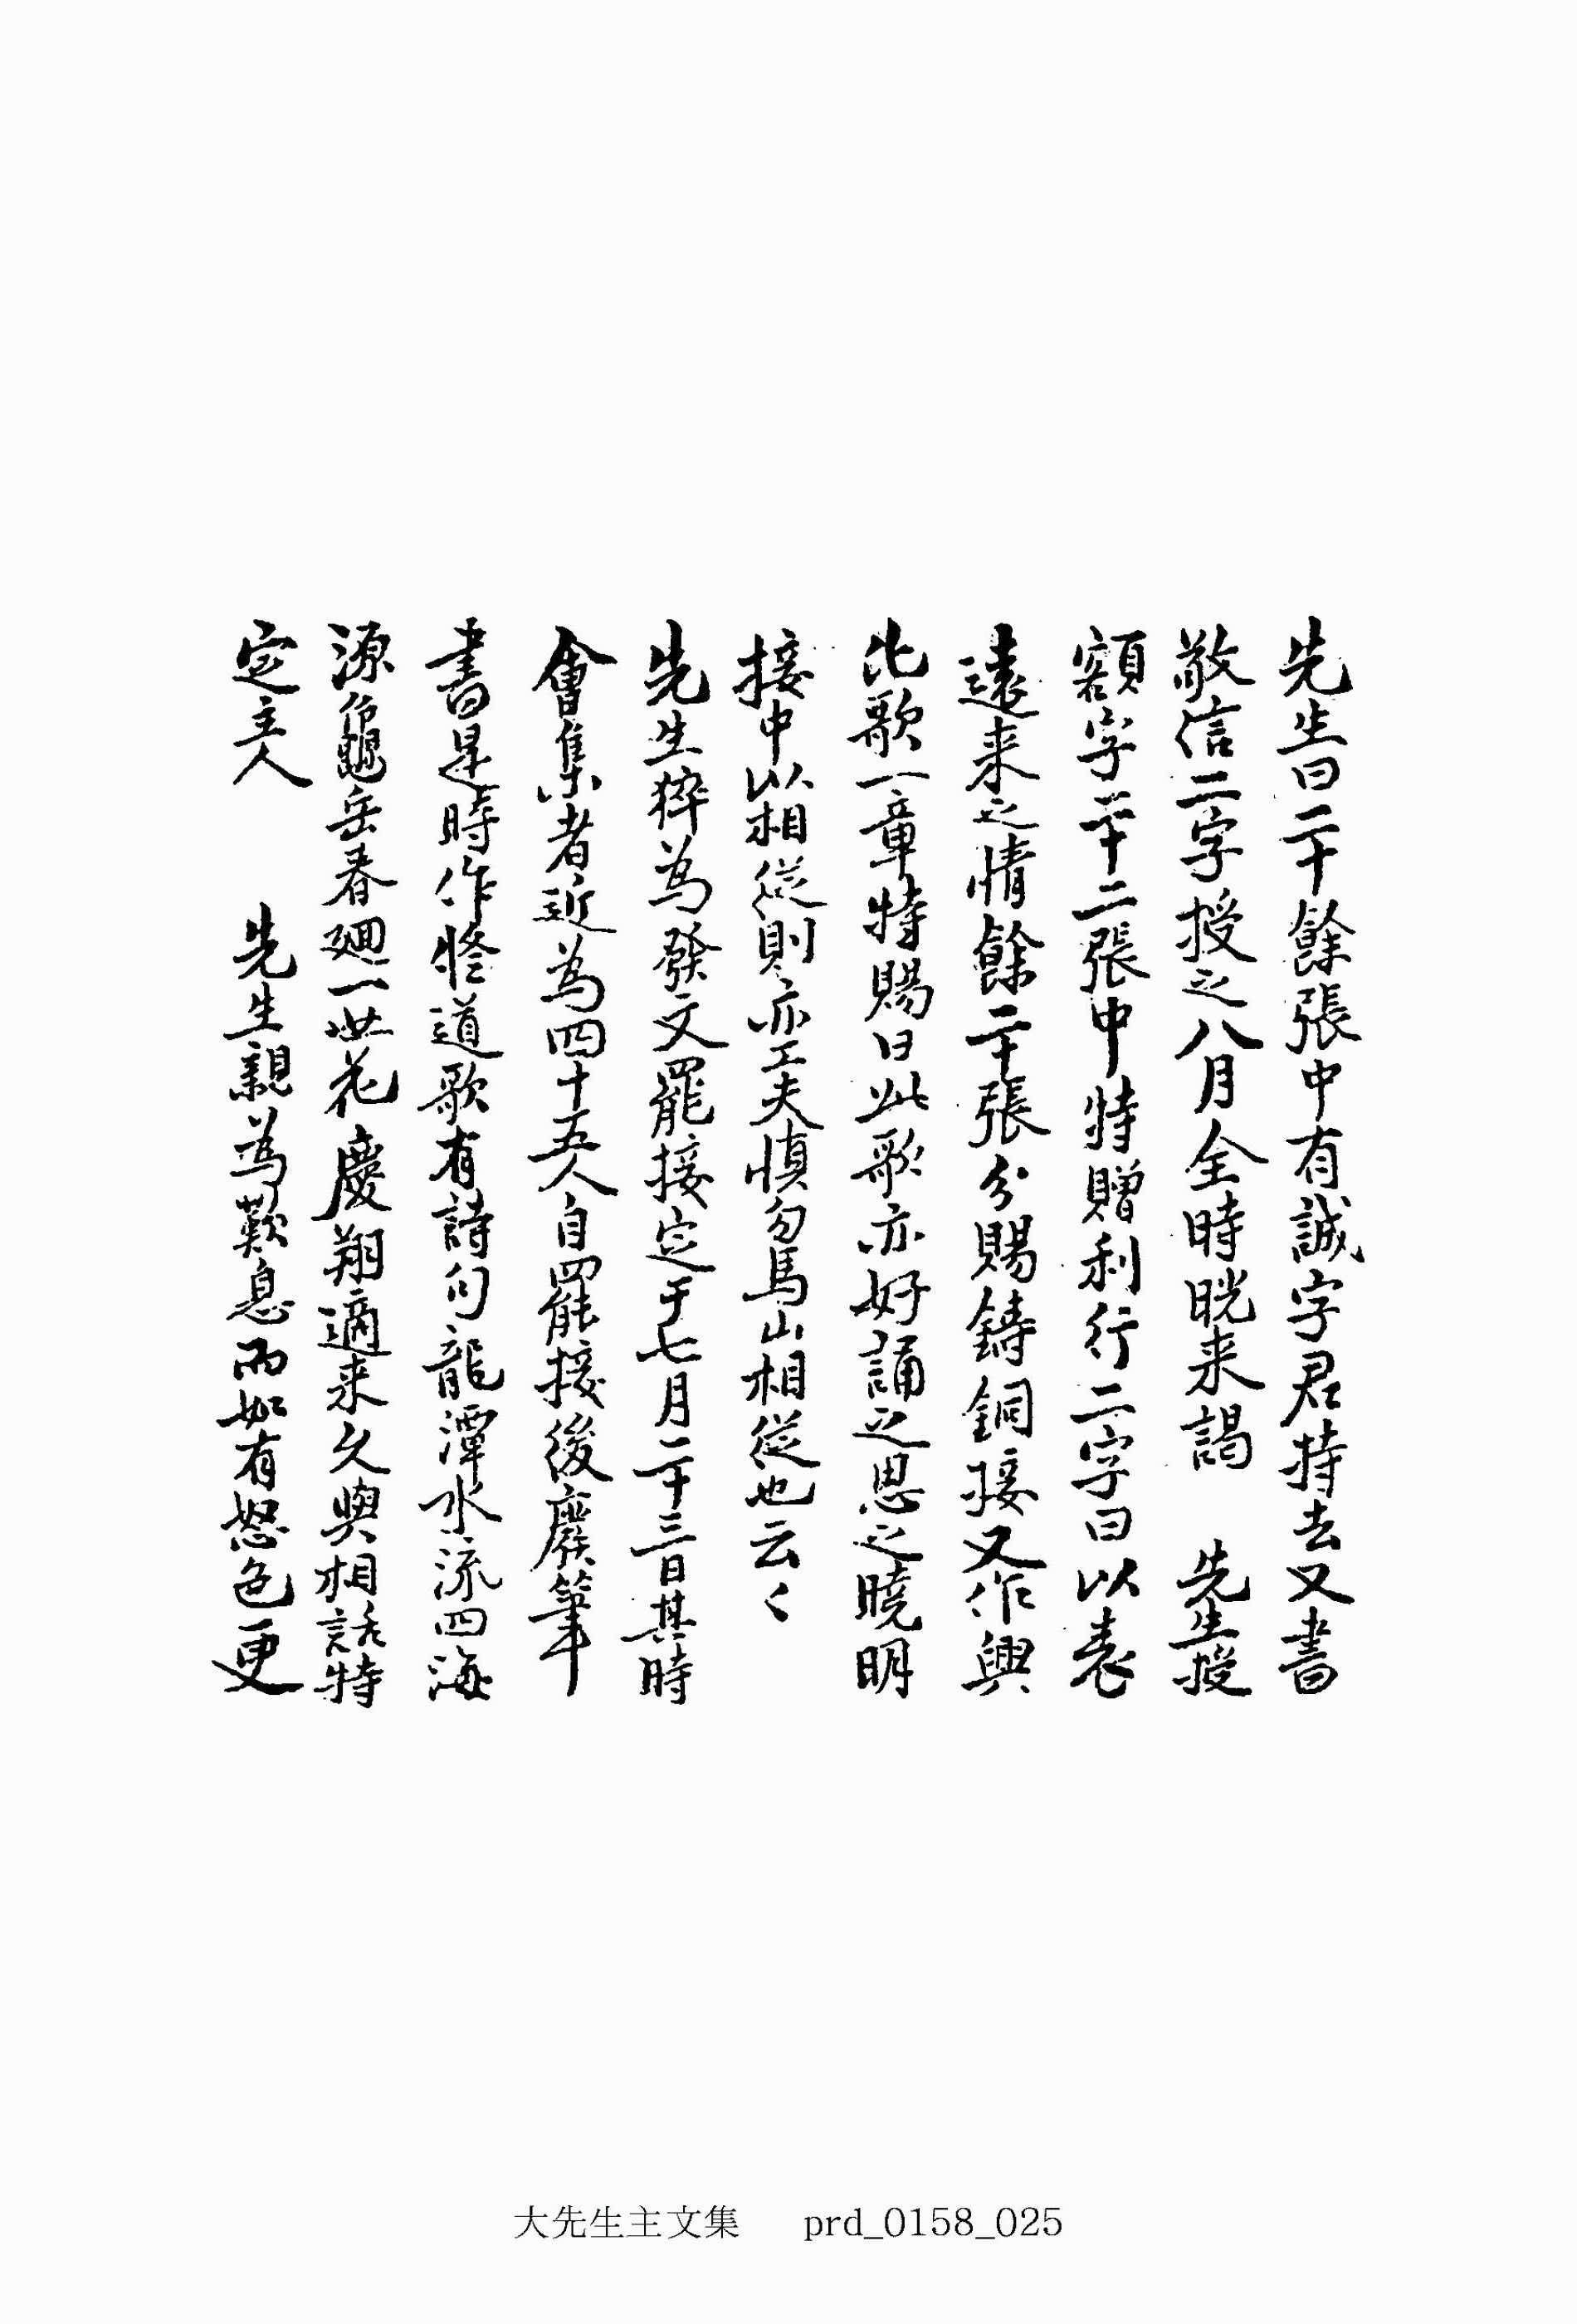 先生曰二十餘張中有誠字君持去又書
敬信二字授之八月全時晄来謁　先生授
額字二十二張中特贈利行二字曰以表
遠来之情餘二十張分賜鑄銅接又作興
比歌一章特賜曰此歌亦好誦之思之曉明
接中以相從則亦工夫慎勿馬山相從也云々
先生猝為發文罷接定于七月二十三日其時
會集者近為四十五人自罷接後廢筆
書是時作修道歌有詩句龍潭水流四海
源龜岳春廻一世花慶翔適来久與相話特
定主人　先生親為歎息而如有怒色更
大先生主文集 prd_0158_025